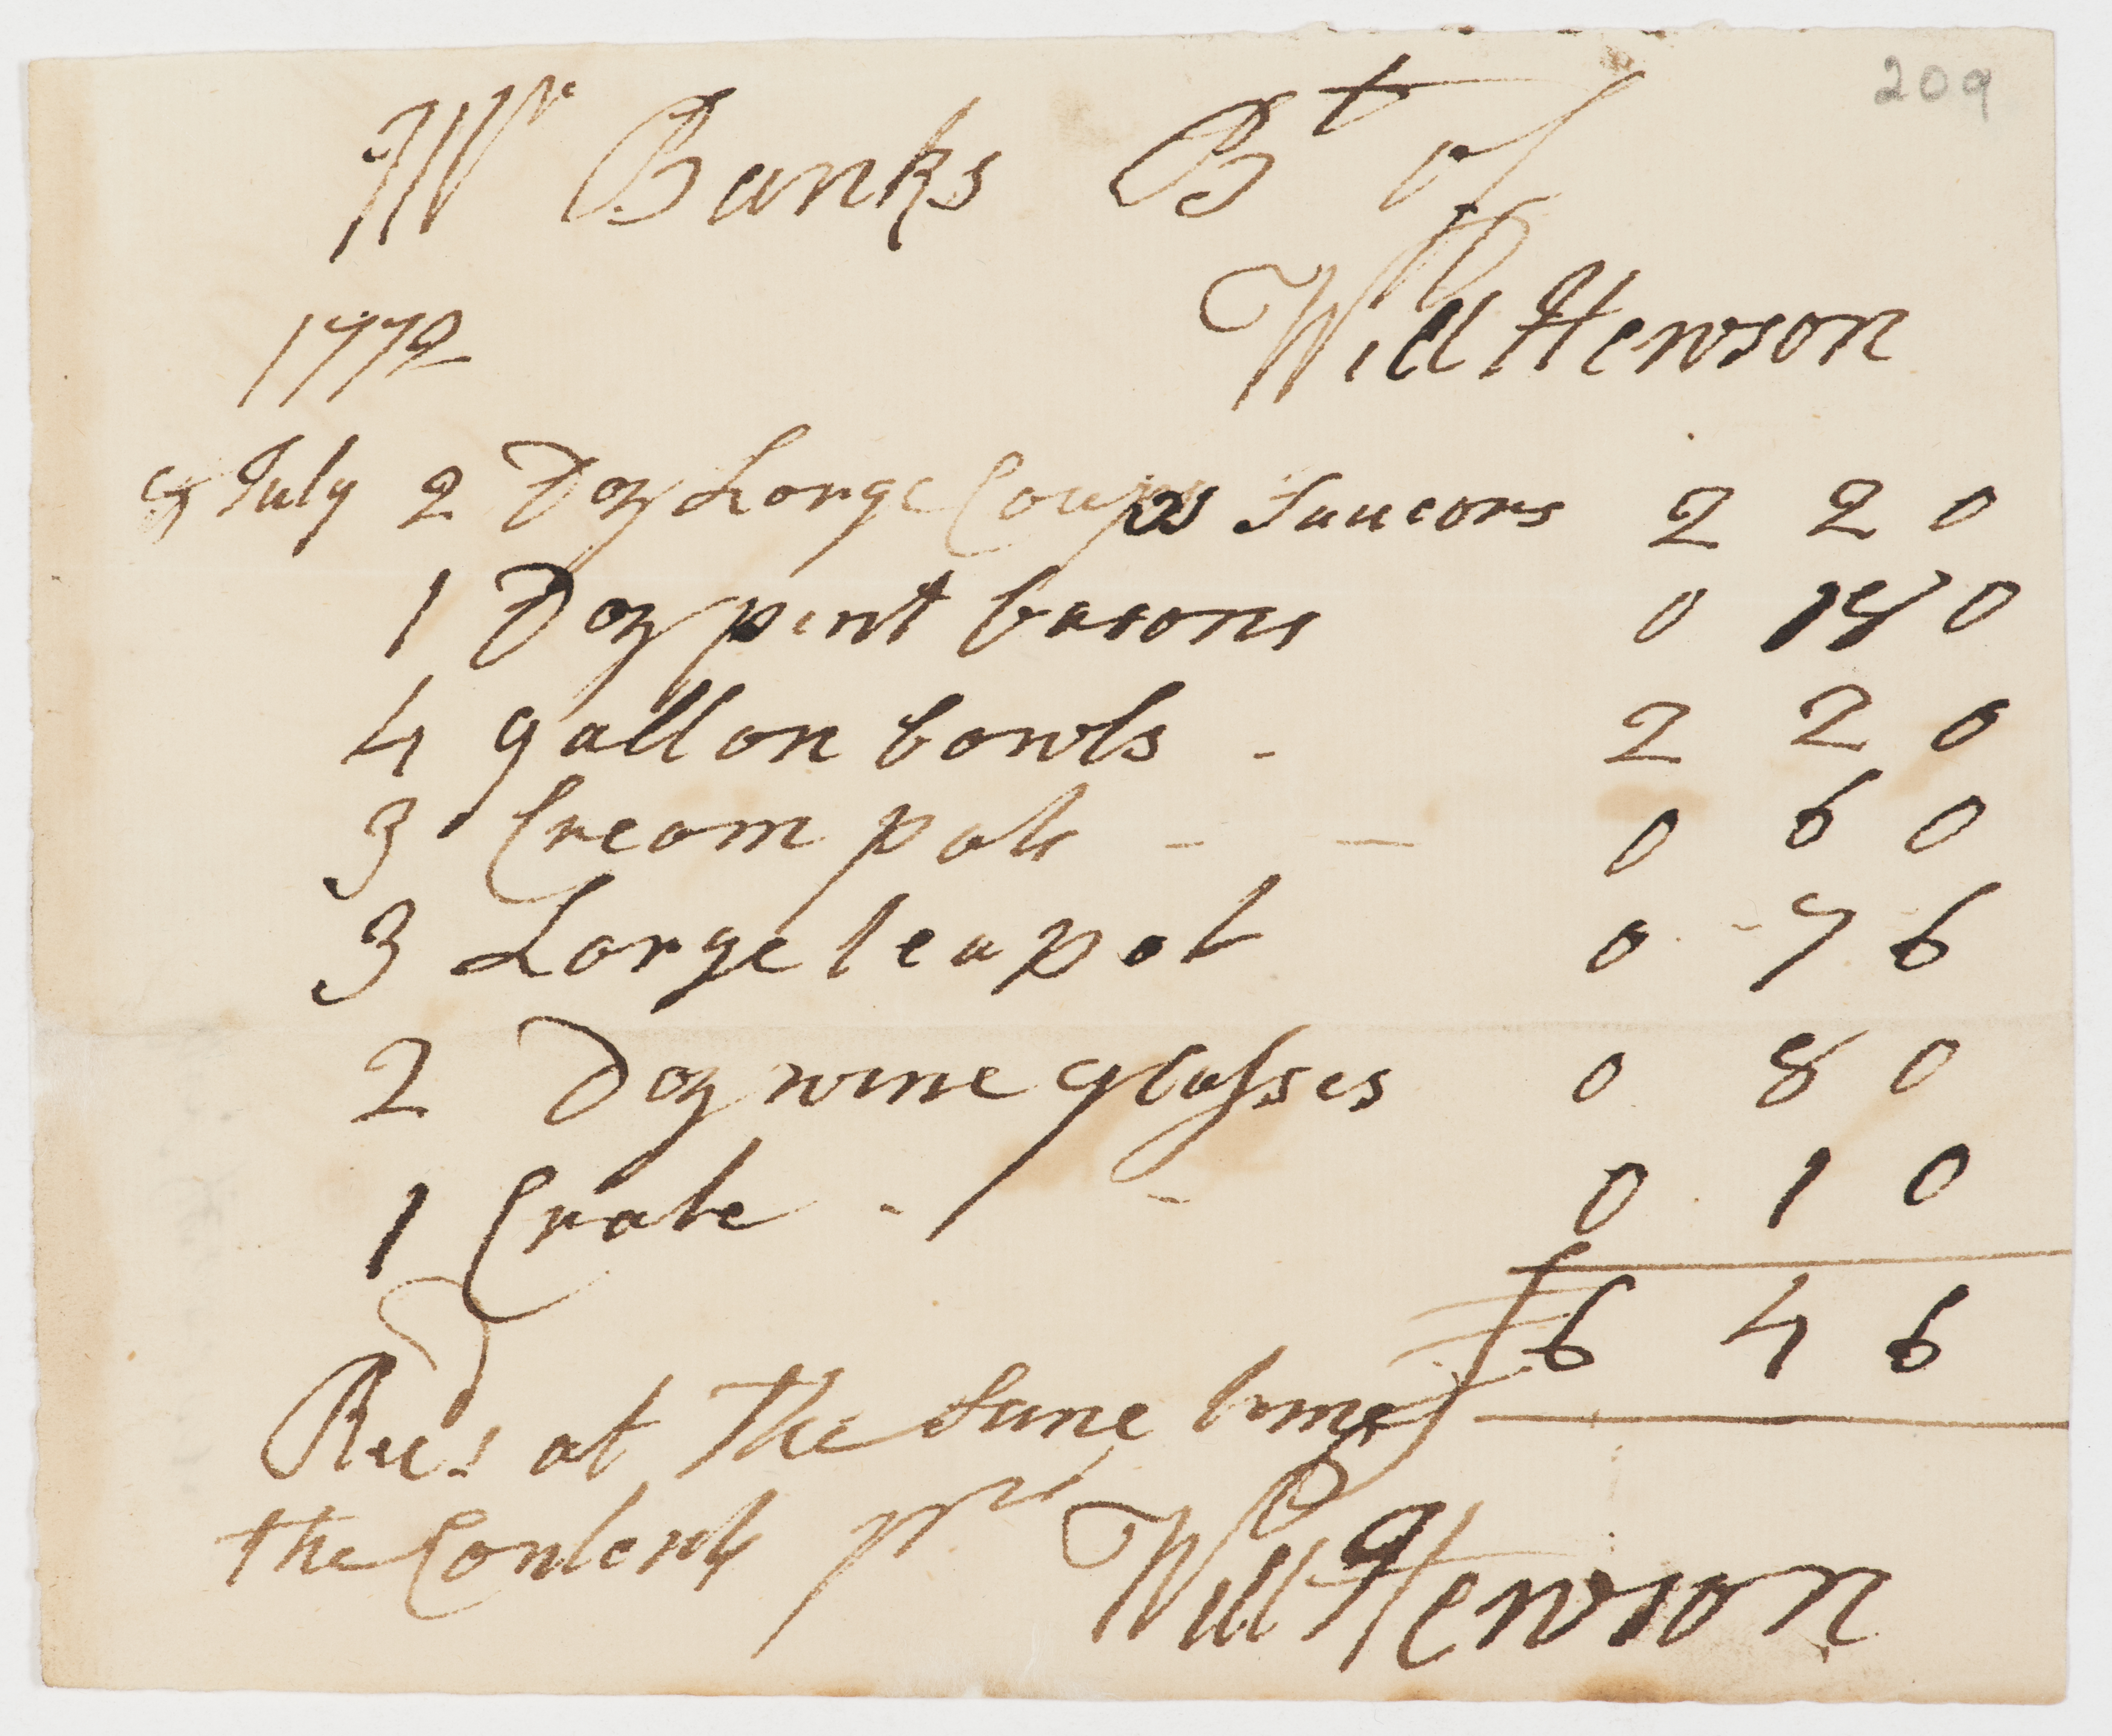 209
Mr Banks Bt of
Will Hewson
1772
July 2 Doz Large Coups Saucors 2 2 0
1 Doz pint basons 0 18 0
4 gallon bowls - 2 2 0
3 Cream pots - - 0 6 0
3 Large teapot 0 - 7 6
2 Doz wine glasses 0 8 0
1 Crate - - 0 1 0
£6 4 6
Recd at the Same time
the Contents pr Will Hewson